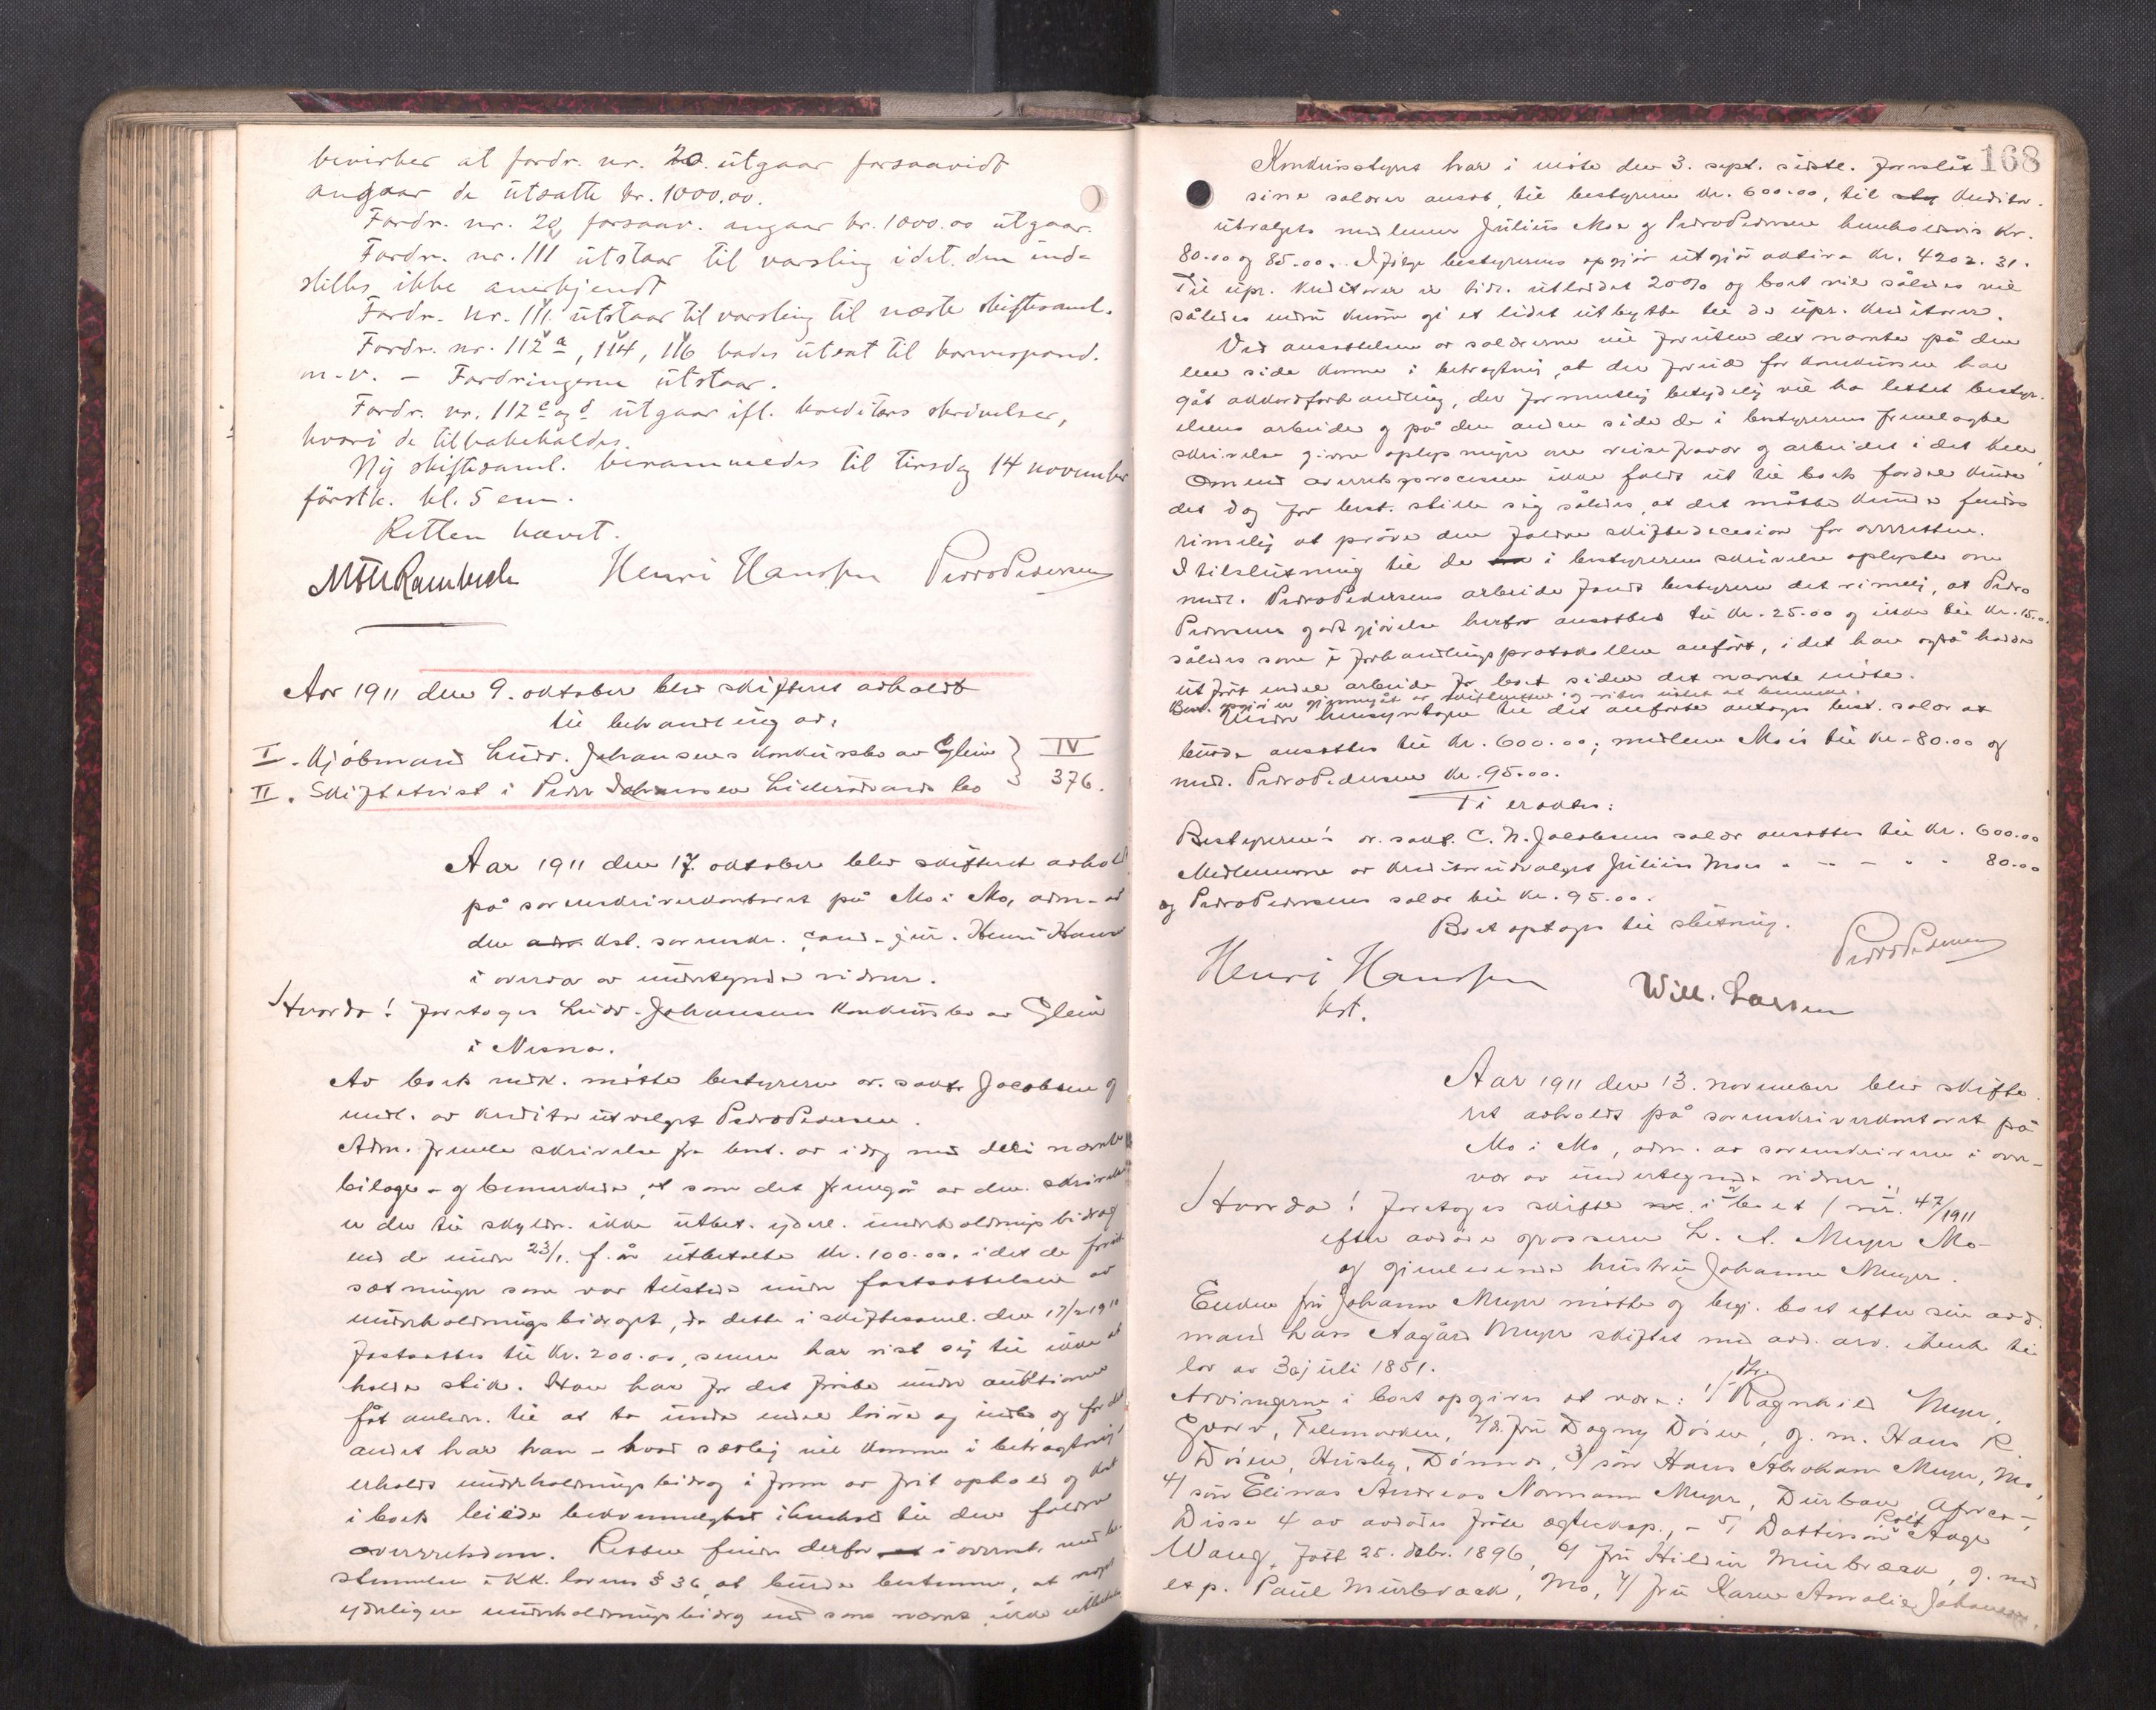 bevirker at fordr. nr. 20 utgaar forsaavidt
angaar de utsatte kr. 1000.00.
Fordr. nr. 20 forsaav. angaar kr. 1000.00 utgaar.
Fordr. nr. 111 utstaar til varsling idet den ind-
stilles ikke anerkjendt
Fordr. nr. 111 utstaar til varsling til næste skiftesaml.
Fordr. nr. 112 a, 114, 116 utsat til korrespond.
m.v. — Fordringerne utstaar.
Fordr. nr. 112 c og d utgaar ifl. kreditors skrivelser,
hvori de tilbakekaldes.
Ny skiftesaml. berammedes til tirsdag 14 november
förstk. kl. 5 em.
Retten hævet.
Henri Hanssen Pedro Pedersen
Aar 1911 den 9. oktober blev skifteret avholdt
til behandling av:
I. Kjöbmand Ludv. Johansens konkursbo av Glein } IV
II. Skiftetvist i Peder bo } 376.
Aar 1911 den 17. oktober blev skifteret avholdt
på sorenskriverkontoret på Mo i Mo, adm. av
den kst. sorenskr. cand. jur. Henri Hans
i overvær av undertegnede vidner.
Hvorda! foretoges Ludv. Johansens konkursbo av Glein
i Nesna.
Av boets vedk. mötte bestyreren or. sakf. Jacobsen og
medl. av kreditorutvalget Pedro Pedersen.
Adm. freml. skrivelse fra best. av idag med deri nævnte
bilage - og bemerkede, at som det fremgår av den skrivelse
er der til skyldn. ikke utbet. yderl. underholdningsbidrag
end de under 23/1. f. år utbetalte kr. 100.00, idet de forut-
sætninger som var tilstede under fastsættelsen av
underholdningsbidraget, da dette i skiftesaml. den 17/2 1911
fastsattes til kr. 200.00, senere har vist sig til ikke at
holde stik. Han har for det förste under auktionen
fåt anledn. til at ta unda endel lösöre og indbo, og for det
andet har han - hvad særlig vil komme i betragtning,
erholdt underholdningsbidrag i form av frit ophold og kost
i boets leiede bekvemmelighed i henhold til den faldne
overretsdom. Retten finder derfor i overensst. med be-
stemmelsen i KK. lovens § 36, at burde bestemme, at noget
yderligere underholdningsbidrag end som nævnt ikke utbetales
168
Konkursstyret har i möte den 3. sept. sidstl. foreslåt
sine salærer ansat, til bestyreren kr. 600.00, til kreditor-
utvalgets medlemmer Julius Moe og Pedro Pedersen henholdsvis kr.
80.00 og 85.00. Ifölge bestyrerens opgjör utgjör aktiva kr. 4202.31.
Til upr. kreditorer er tidl. utloddet 20% og boet vil således
således endnu kunne gi et lidet utbytte til de upr. kreditorer.
Ved ansættelsen av salærerne vil foruten det nævnte på den
ene side komme i betragtning, at der forut for konkursen har
gåt akkordforhandling, der formentlig betydelig vil ha lettet bestyr-
elsens arbeide og på den anden side de i bestyrerens fremlagte
skrivelse givne oplysninger om reisefravær og arbeidet i det hele.
Om end overretsprocessen ikke faldt ut til boets fordel kunde
det dog for best. stille sig således, at det måtte kunde findes
rimelig at pröve den faldne skiftedecision for overretten.
I tilslutning til de i bestyrerens skrivelse oplyste om
medl. Pedro Pedersens arbeide fandt bestyreren det rimelig, at Pedro
Pedersens godtgjörelse herfor ansættes til kr. 25.00 og ikke til kr. 15.00
således som i forhandlingsprotokollen anfört, idet han også hadde
utfört endel arbeide for boet siden det nævnte möte.
Best. opgjör er gjennemgåt av skifteretten og vites intet at bemerke.
Under hensyntagen til det anförte antages best. salær at
burde ansættes til kr. 600.00; medlem Moe's til kr. 80.00 og
medl. Pedro Pedersen kr. 95.00.
Ti eragtes:
Bestyreren's or. sakf. C. N. Jakobsens salær ansættes til kr. 600.00
Medlemmerne av kreditorutvalget Julius Moes " - - " " 80.00
og Pedro Pedersens salær til kr. 95.00.
Boet optages til slutning.
Pedro Pedersen
Henri Hanssen Will. Larsen
kst.
Aar 1911 den 13. november blev skifte-
ret avholdt på sorenskriverkontoret på
Mo i Mo, adm. av sorenskriveren i over-
vær av undertegnede vidner.
Hvorda! foretoges skifte i boet nr. 47/1911
efter avdöde grosserer L. A. Meyer Mo
og gjenlevende hustru Johanne Meyer.
Enken fru Johanne Meyer mötte og begj. boet efter sin avd.
mand Lars Aagård Meyer skiftet med avd. arv. i henh. til
lov av 30 juli 1851.
Arvingerne i boet opgives at være: 1/ fr. Ragnhild Meyer,
Telemarken, 2/ fru Dagny Dösen, g. m. Hans R.
Dösen, Husby, Dönnes, 3/ sön Hans Abraham Meyer, Mo,
4/ sön Elinas Andreas Normann Meyer, Durban, Africa,
Disse 4 av avdödes förste ægteskap, - 5/ Dattersön Rolf Aage
Wang, födt 25. debr. 1896, 6/ fru Hildur Meinbræck, g. med
exp. Paul Meinbræck, Mo, 7/ fru Karen Amalie Johansen,